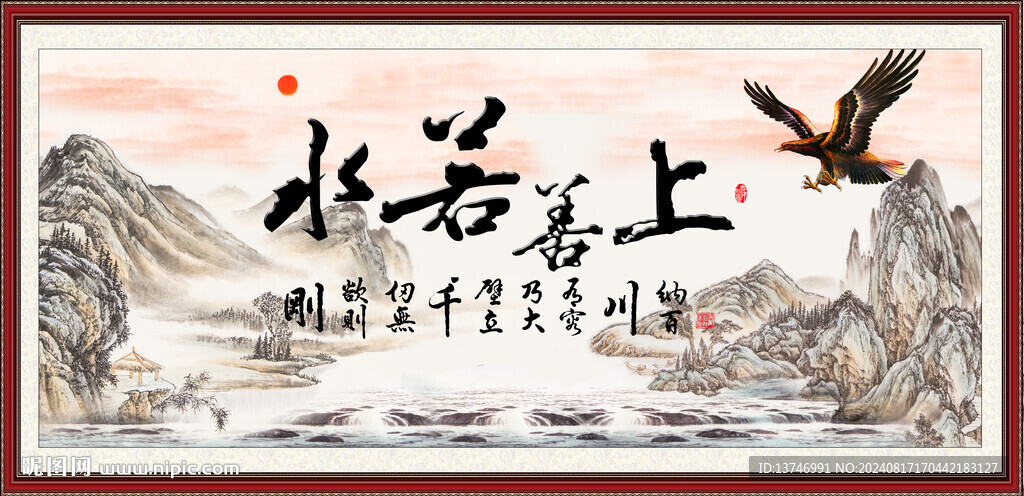 上善若水
納百川有容乃大壁立千仞無欲則剛
昵图网 www.nipic.com
ID:13746991 NO:20240817170442183127